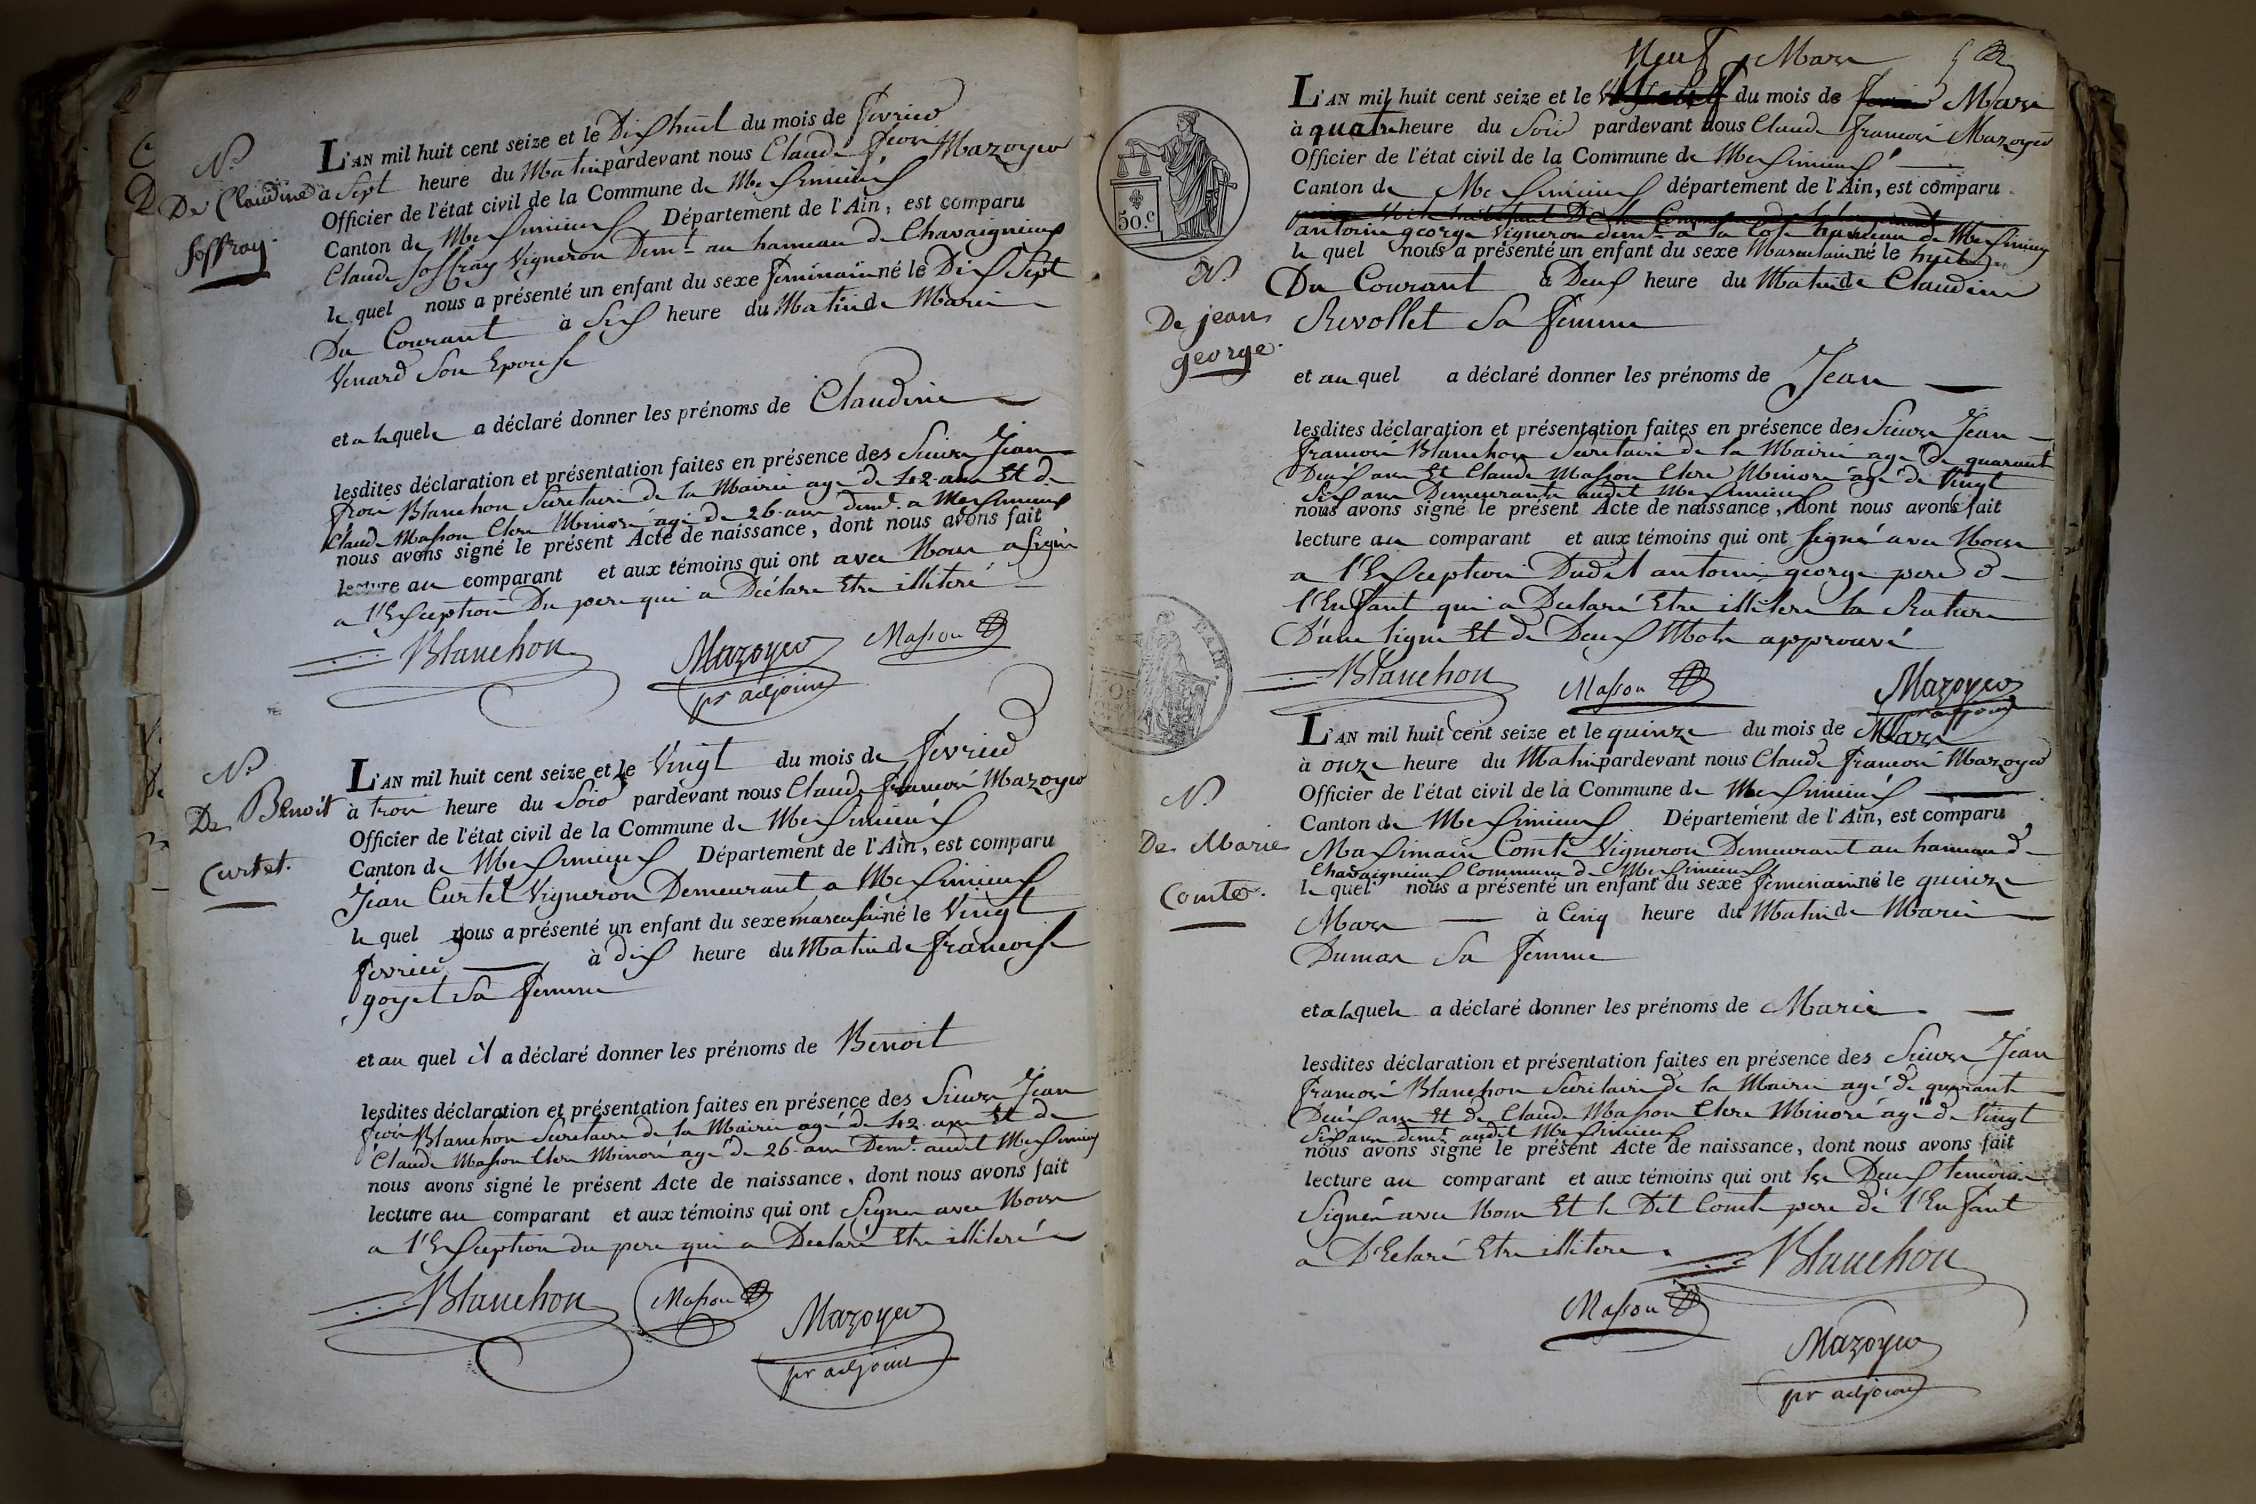 N.
De Claudine
Joffray.
L'AN mil huit cent seize et le Dix huit du mois de fevrier
à Sept heure du Matin pardevant nous Claude frcois Mazoyer
Officier de l'état civil de la Commune de Meximieux
Canton de Meximieux Département de l'Ain, est comparu
Claude Joffray Vigneron Demt. au hameau de Chavaignieux
le quel nous a présenté un enfant du sexe feminain né le Dix Sept
Du Courant à Six heure du Matin de Marie
Venard Son Epouse
et a la quele a déclaré donner les prénoms de Claudine
lesdites déclaration et présentation faites en présence des Sieurs Jean
frcois Blanchon Secretaire de la Mairie agé de 42 ans Et de
Claude Masson Clerc Minoré agé de 26 ans demt. a Meximieux
nous avons signé le présent Acte de naissance, dont nous avons fait
lecture au comparant et aux témoins qui ont avec Nous a Signé
a l'Exception Du pere qui a Déclaré Etre illiteré
Blanchon Mazoyer Masson
pr adjoint
N.
De Benoit
Curtet.
L'AN mil huit cent seize et le Vingt du mois de fevrier
à trois heure du Soir pardevant nous Claude francois Mazoyer
Officier de l'état civil de la Commune de Meximieux
Canton de Meximieux Département de l'Ain, est comparu
Jean Curtet Vigneron Demeurant a Meximieux
le quel nous a présenté un enfant du sexe masculain né le Vingt
fevrier à dix heure du Matin de francoise
goyet Sa femme
et au quel il a déclaré donner les prénoms de Benoit
lesdites déclaration et présentation faites en présence des Sieurs Jean
frcois Blanchon Secretaire de la Mairie agé de 42 ans Et de
Claude Masson Clerc Minoré agé de 26 ans Demt. audit Meximieux
nous avons signé le présent Acte de naissance, dont nous avons fait
lecture au comparant et aux témoins qui ont Signer avec Nous
a l'Exception du pere qui a Declaré Etre illiteré
Blanchon Masson Mazoyer
pr adjoint
Neuf Mars
L'AN mil huit cent seize et le du mois de Mars
à quatre heure du Soir pardevant nous Claude francois Mazoyer
Officier de l'état civil de la Commune de Meximieux
Canton de Meximieux département de l'Ain, est comparu
antoine george Vigneron demt. a la Cote hameau de Meximieux
50.c
le quel nous a présenté un enfant du sexe Masculain né le huit
N.
De jean
george.
Du Courant à Deux heure du Matin de Claudine
Revollet Sa femme
et au quel a déclaré donner les prénoms de Jean
lesdites déclaration et présentation faites en présence des Sieurs Jean
francois Blanchon Secretaire de la Mairie agé de quarante
Deux ans Et Claude Masson Clerc Minoré agé de Vingt
Six ans Demeurants audit Meximieux
nous avons signé le présent Acte de naissance, dont nous avons fait
lecture au comparant et aux témoins qui ont Signé avec Nous
a l'Exception Dudit antoine george pere d
l'Enfant qui a Declaré Etre illitere la Rature
D'une ligne Et de Deux Mots approuvé
Blanchon Masson Mazoyer
pr adjoint
L'AN mil huit cent seize et le quinze du mois de Mars
à onze heure du Matin pardevant nous Claude francois Mazoyer
Officier de l'état civil de la Commune de Meximieux
N.
De Marie
Comte.
Canton de Meximieux Département de l'Ain, est comparu
Maximain Comte Vigneron Demeurant au hameau de
Chavaignieux Commune de Meximieux
le quel nous a présenté un enfant du sexe feminain né le quinze
Mars à Cinq heure du Matin de Marie
Dumas Sa femme
et a la quele a déclaré donner les prénoms de Marie
lesdites déclaration et présentation faites en présence des Sieurs Jean
francois Blanchon Secretaire de la Mairie agé de quarante
Deux ans Et de Claude Masson Clerc Minoré agé de Vingt
Six ans demt. audit Meximieux
nous avons signé le présent Acte de naissance, dont nous avons fait
lecture au comparant et aux témoins qui ont les Deux temoins
Signé avec Nous Et le Dit Comte pere de l'Enfant
a Declaré Etre illitere.
Blanchon
Masson
Mazoyer
pr adjoint